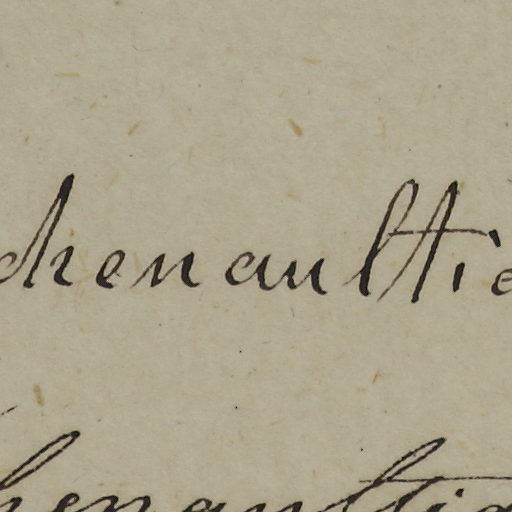 chenaultia
henaultia